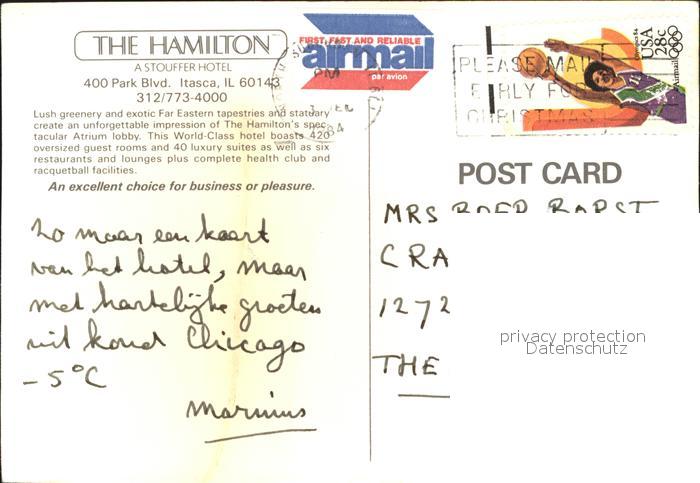 THE HAMILTON
A STOUFFER HOTEL
400 Park Blvd. Itasca, IL 60143
312/773-4000
Lush greenery and exotic Far Eastern tapestries and statuary
create an unforgettable impression of The Hamilton's spec-
tacular Atrium lobby. This World-Class hotel boasts 420
oversized guest rooms and 40 luxury suites as well as six
restaurants and lounges plus complete health club and
racquetball facilities.
An excellent choice for business or pleasure.
FIRST, FAST AND RELIABLE
airmail
par avion
PLEASE MAIL
EARLY FOR
CHRISTMAS
USA
28c
Airmail
POST CARD
zo maar een kaart
van het hotel, maar
met hartelijke groeten
uit koud Chicago
-5°C
Marinus
MRS
CRA
1272
THE
privacy protection
Datenschutz